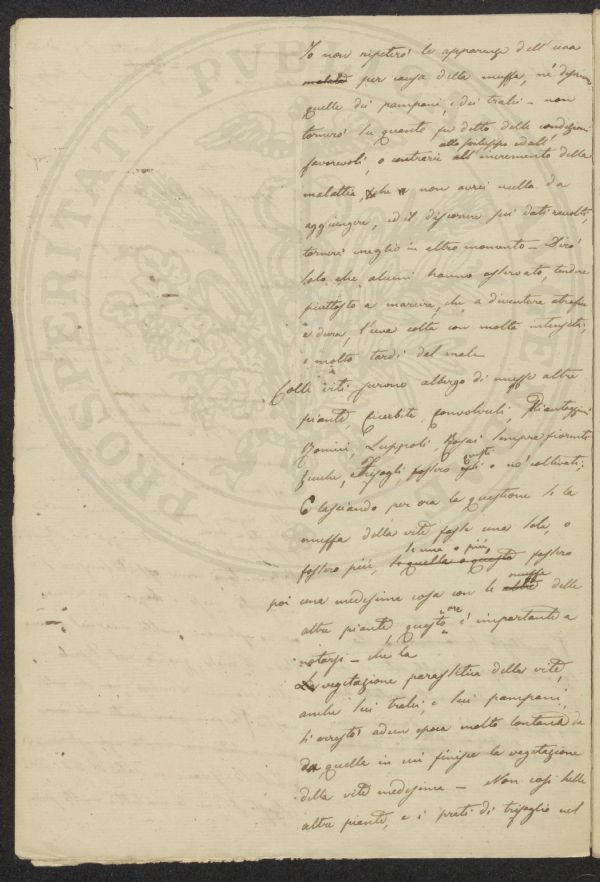 Io non ripeterò le apparenze dell'uva
malata per causa della muffa, né
quelle dei pampani, e dei tralci – non
tornerò su quanto fu detto delle condizioni
allo sviluppo ed all'
favorevoli, o contrarie all'incremento della
malattia, che non avrei nulla da
aggiungere, ed il discorrere sui dati raccolti,
tornerà meglio in altro momento – Dirò
solo che alcuni hanno osservato, tendere
piuttosto a marcire, che a diventare atrofica
e dura, l'uva colta con molta intensità,
e molto tardi dal male
Colle viti furono albergo di muffe altre
piante Cicerbite, Convolvuli, Piantaggini
Luppoli, Rosai sempre fioriti
Zucche, Trifogli, fossero questi o no coltivati;
E lasciando per ora la questione se la
muffa della vite fosse una sola, o
se una o più,
fossero più, se quella o queste fossero
muffe
poi una medesima cosa con le altre delle
altre piante, questo è importante a
notarsi – che la
La vegetazione parassitica della vite,
anche sui tralci, e sui pampani,
si arrestò ad un epoca molto lontana da
da quella in cui finisce la vegetazione
della vite medesima – Non così sulle
altre piante, e i prati di trifoglio nel